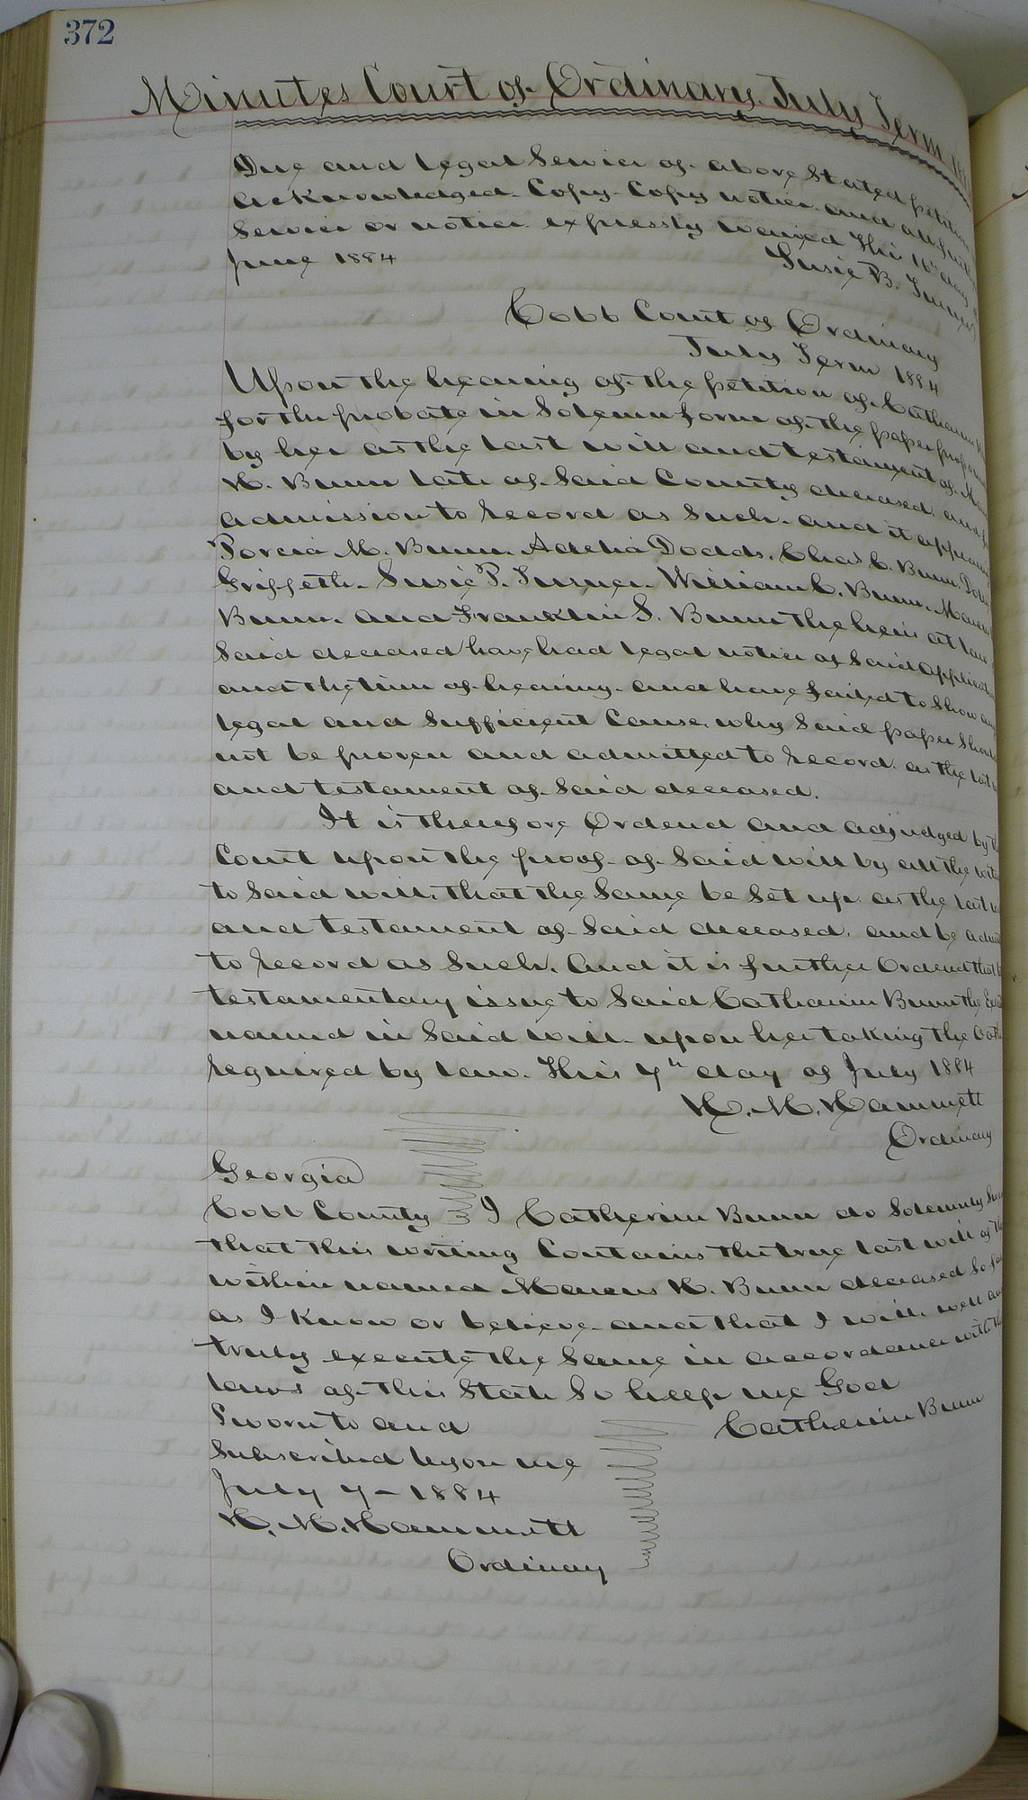 372
Minutes Court of Ordinary. July Term
Due and legal Service of above Stated petition
acknowledged. Copy. Copy notice and all further
Service or notice expressly waived This 16th day of
June 1884
Susie B. Turner
Cobb Court of Ordinary
July Term 1884
Upon the hearing of the petition of Catharine
for the probate in Solemn form of the paper
by her as the last will and testament of
H. Bunn late of said County deceased and
admission to record as such. and it appearing
Porcia M. Bunn. Adelia Dodds. Chas C. Bunn.
Griffeth. Susie P. Turner. William C. Bunn.
Bunn. and Franklin S. Bunn the heirs at law
Said deceased have had legal notice of said
and the time of hearing. and have failed to Show any
legal and sufficient Cause why said paper
not be proven and admitted to record. as the last
and testament of said deceased.
It is therefore Ordered and adjudged by
Court upon the proof of said will by all the
to said will. that the same be set up as the last
and testament of said deceased. and be
to record as such. and it is further Ordered that
testamentary issue to said Catharine Bunn the
named in said will upon her taking the Oath
required by law. This 7th day of July 1884
H. M. Hammett
Ordinary
Georgia
Cobb County } I Catherine Bunn do Solemnly
that this writing Contains the true last will of
within named Marcus H. Bunn deceased So far
as I Know or believe and that I will well and
truly execute the same in accordance with the
laws of this State So help me God
Sworn to and
Catherine Bunn
Subscribed before me
July 7 - 1884
H. M. Hammett
Ordinary